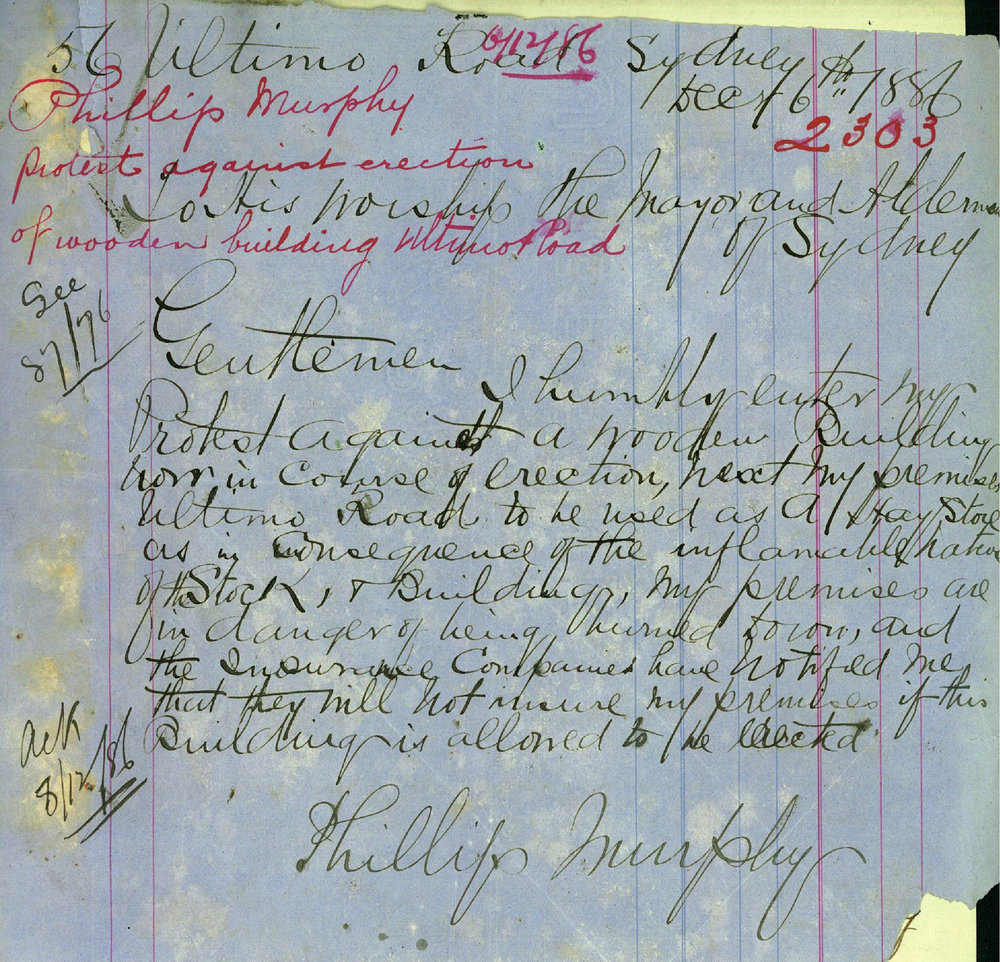 6/12/86
56 Ultimo Road Sydney
Decr 6th 1886
Phillip Murphy
2303
protest against erection
To His Worship the Mayor and Aldermen
of wooden building Ultimo Road
of Sydney
See
87/76
Gentlemen
I humbly enter my
Protest against a wooden Building
now in Course of erection, next my premises
Ultimo Road to be used as a Hay Store
as in Consequence of the inflamable nature
of the Stock, & Building, my premises are
in danger of being burned down, and
the Insurance Companies have notified me
that they will not insure my premises if this
Building is allowed to be erected
Ack
8/12/86
Phillip Murphy